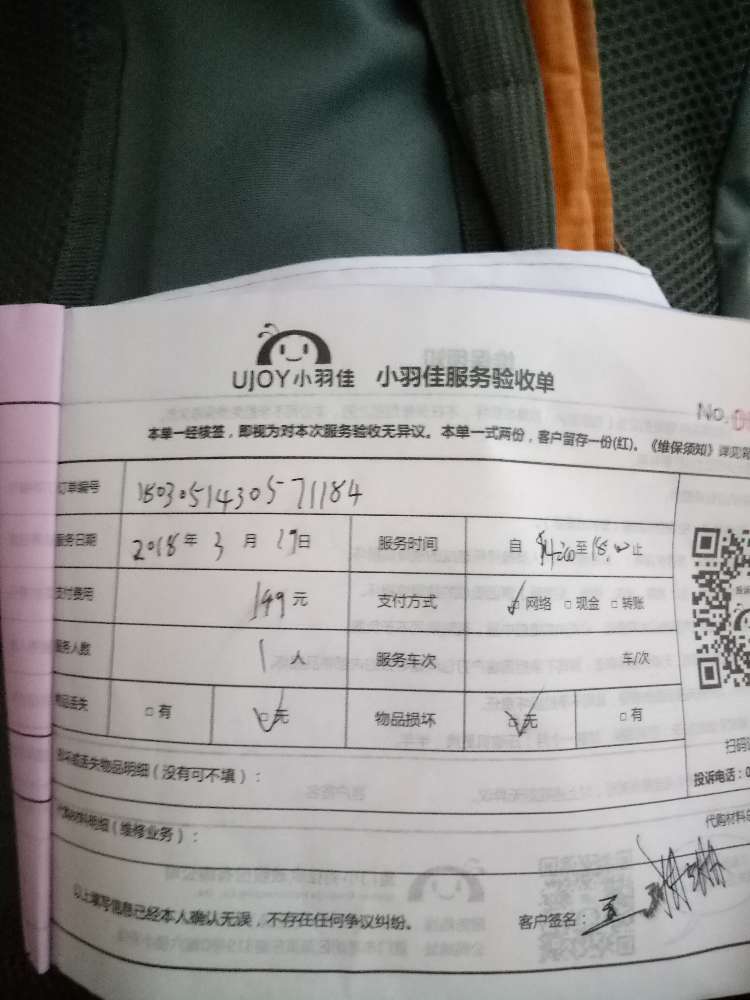 UJOY小羽佳 小羽佳服务验收单
No.
本单一经核签，即视为对本次服务验收无异议。本单一式两份，客户留存一份(红)。《维保须知》详见背
订单编号 180305143057 1184
服务日期 2018年 3 月 19日 服务时间 自 14:00至18:00止
支付费用 149元 支付方式 ✓网络 □现金 □转账
服务人数 1人 服务车次 车/次
物品丢失 □有 ☑无 物品损坏 ☑无 □有
损坏或丢失物品明细（没有可不填）：
扫码
投诉电话：0
代购材料明细（维修业务）：
代购材料总
以上填写信息已经本人确认无误，不存在任何争议纠纷。 客户签名：